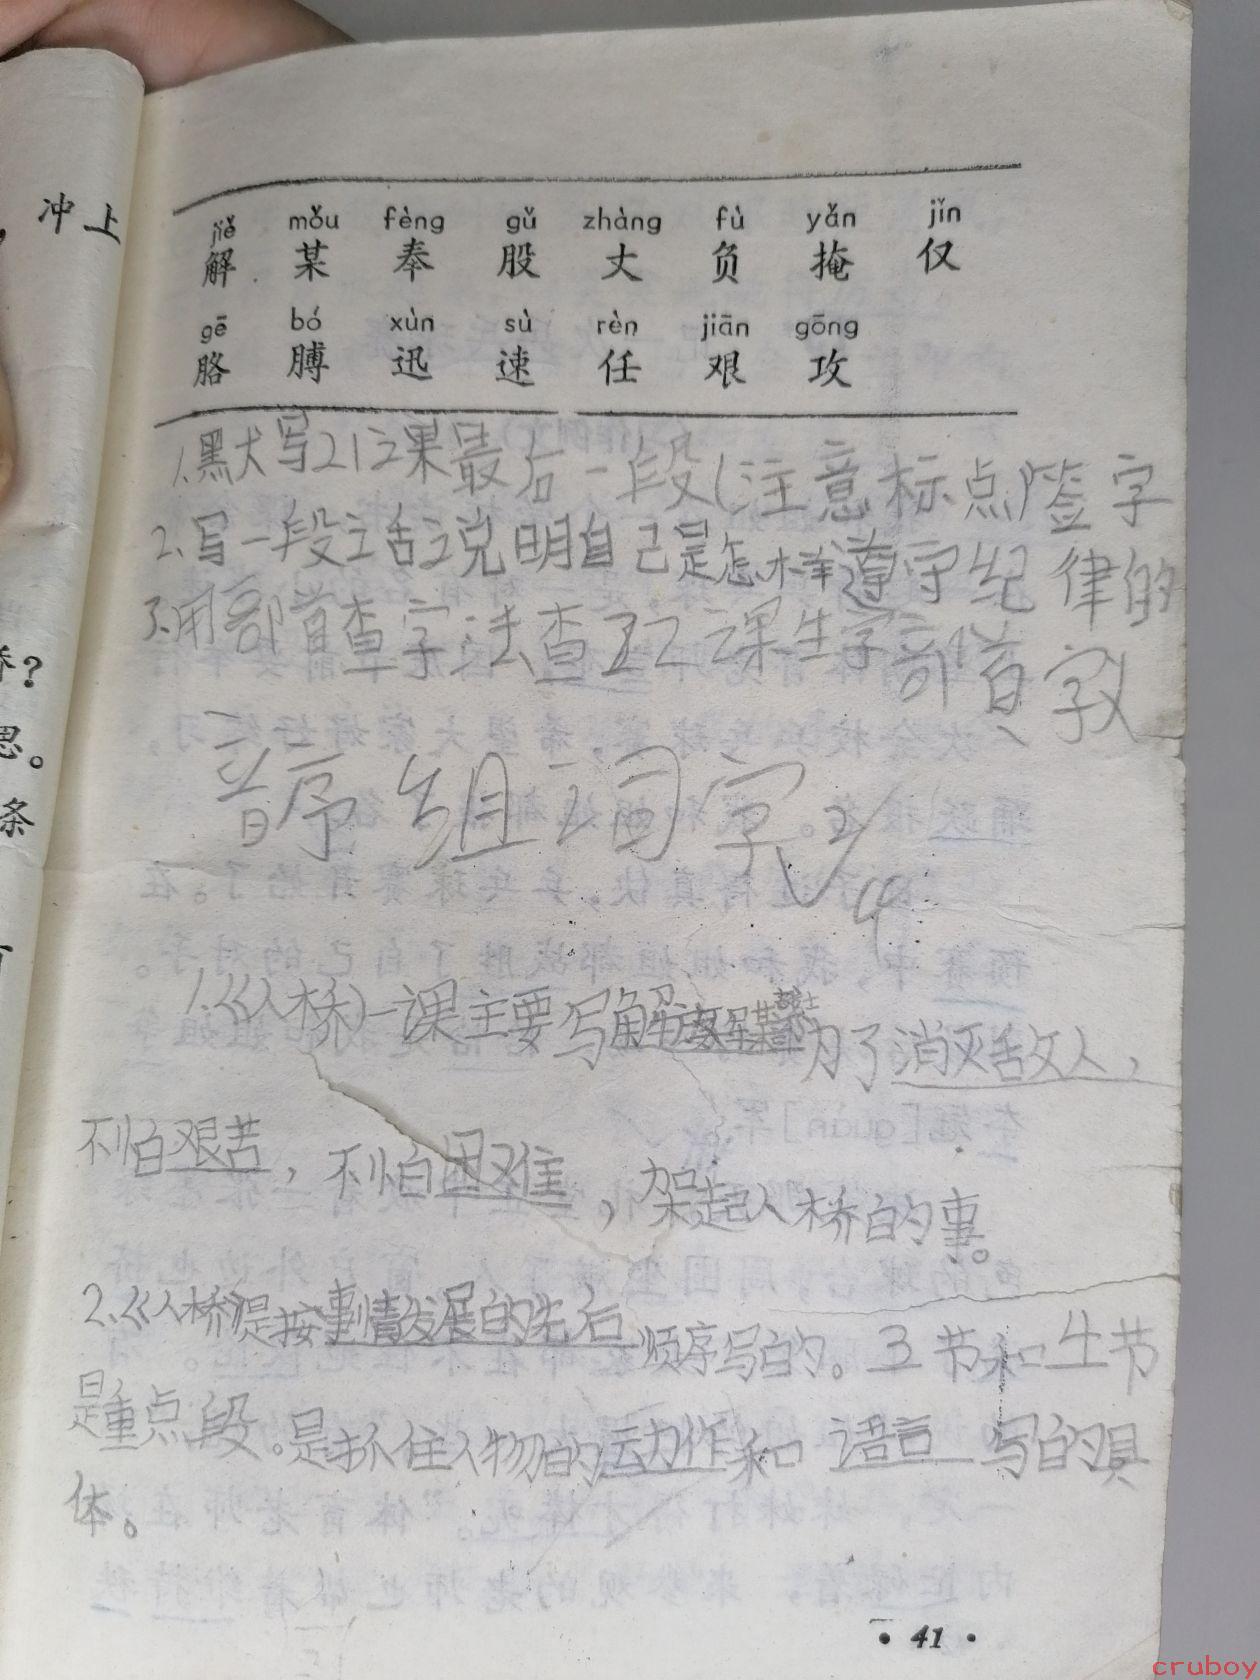 冲上
jiě mǒu fèng gǔ zhàng fù yǎn jǐn
解 某 奉 股 丈 负 掩 仅
gē bó xùn sù rèn jiān gōng
胳 膊 迅 速 任 艰 攻
1.默写21课最后一段(注意标点)签字
2.写一段话说明自己是怎样遵守纪律的
3.用部首查字法查22课生字部首、字义
音序 组词 字
1.《人桥》一课主要写解放军某部战士为了消灭敌人，
不怕艰苦，不怕困难，架起人桥的事。
2.《人桥》是按事情发展的先后顺序写的。3节和4节
是重点段。是抓住人物的动作和语言写的具
体。
• 41 •
桥？
思。
条
cruboy